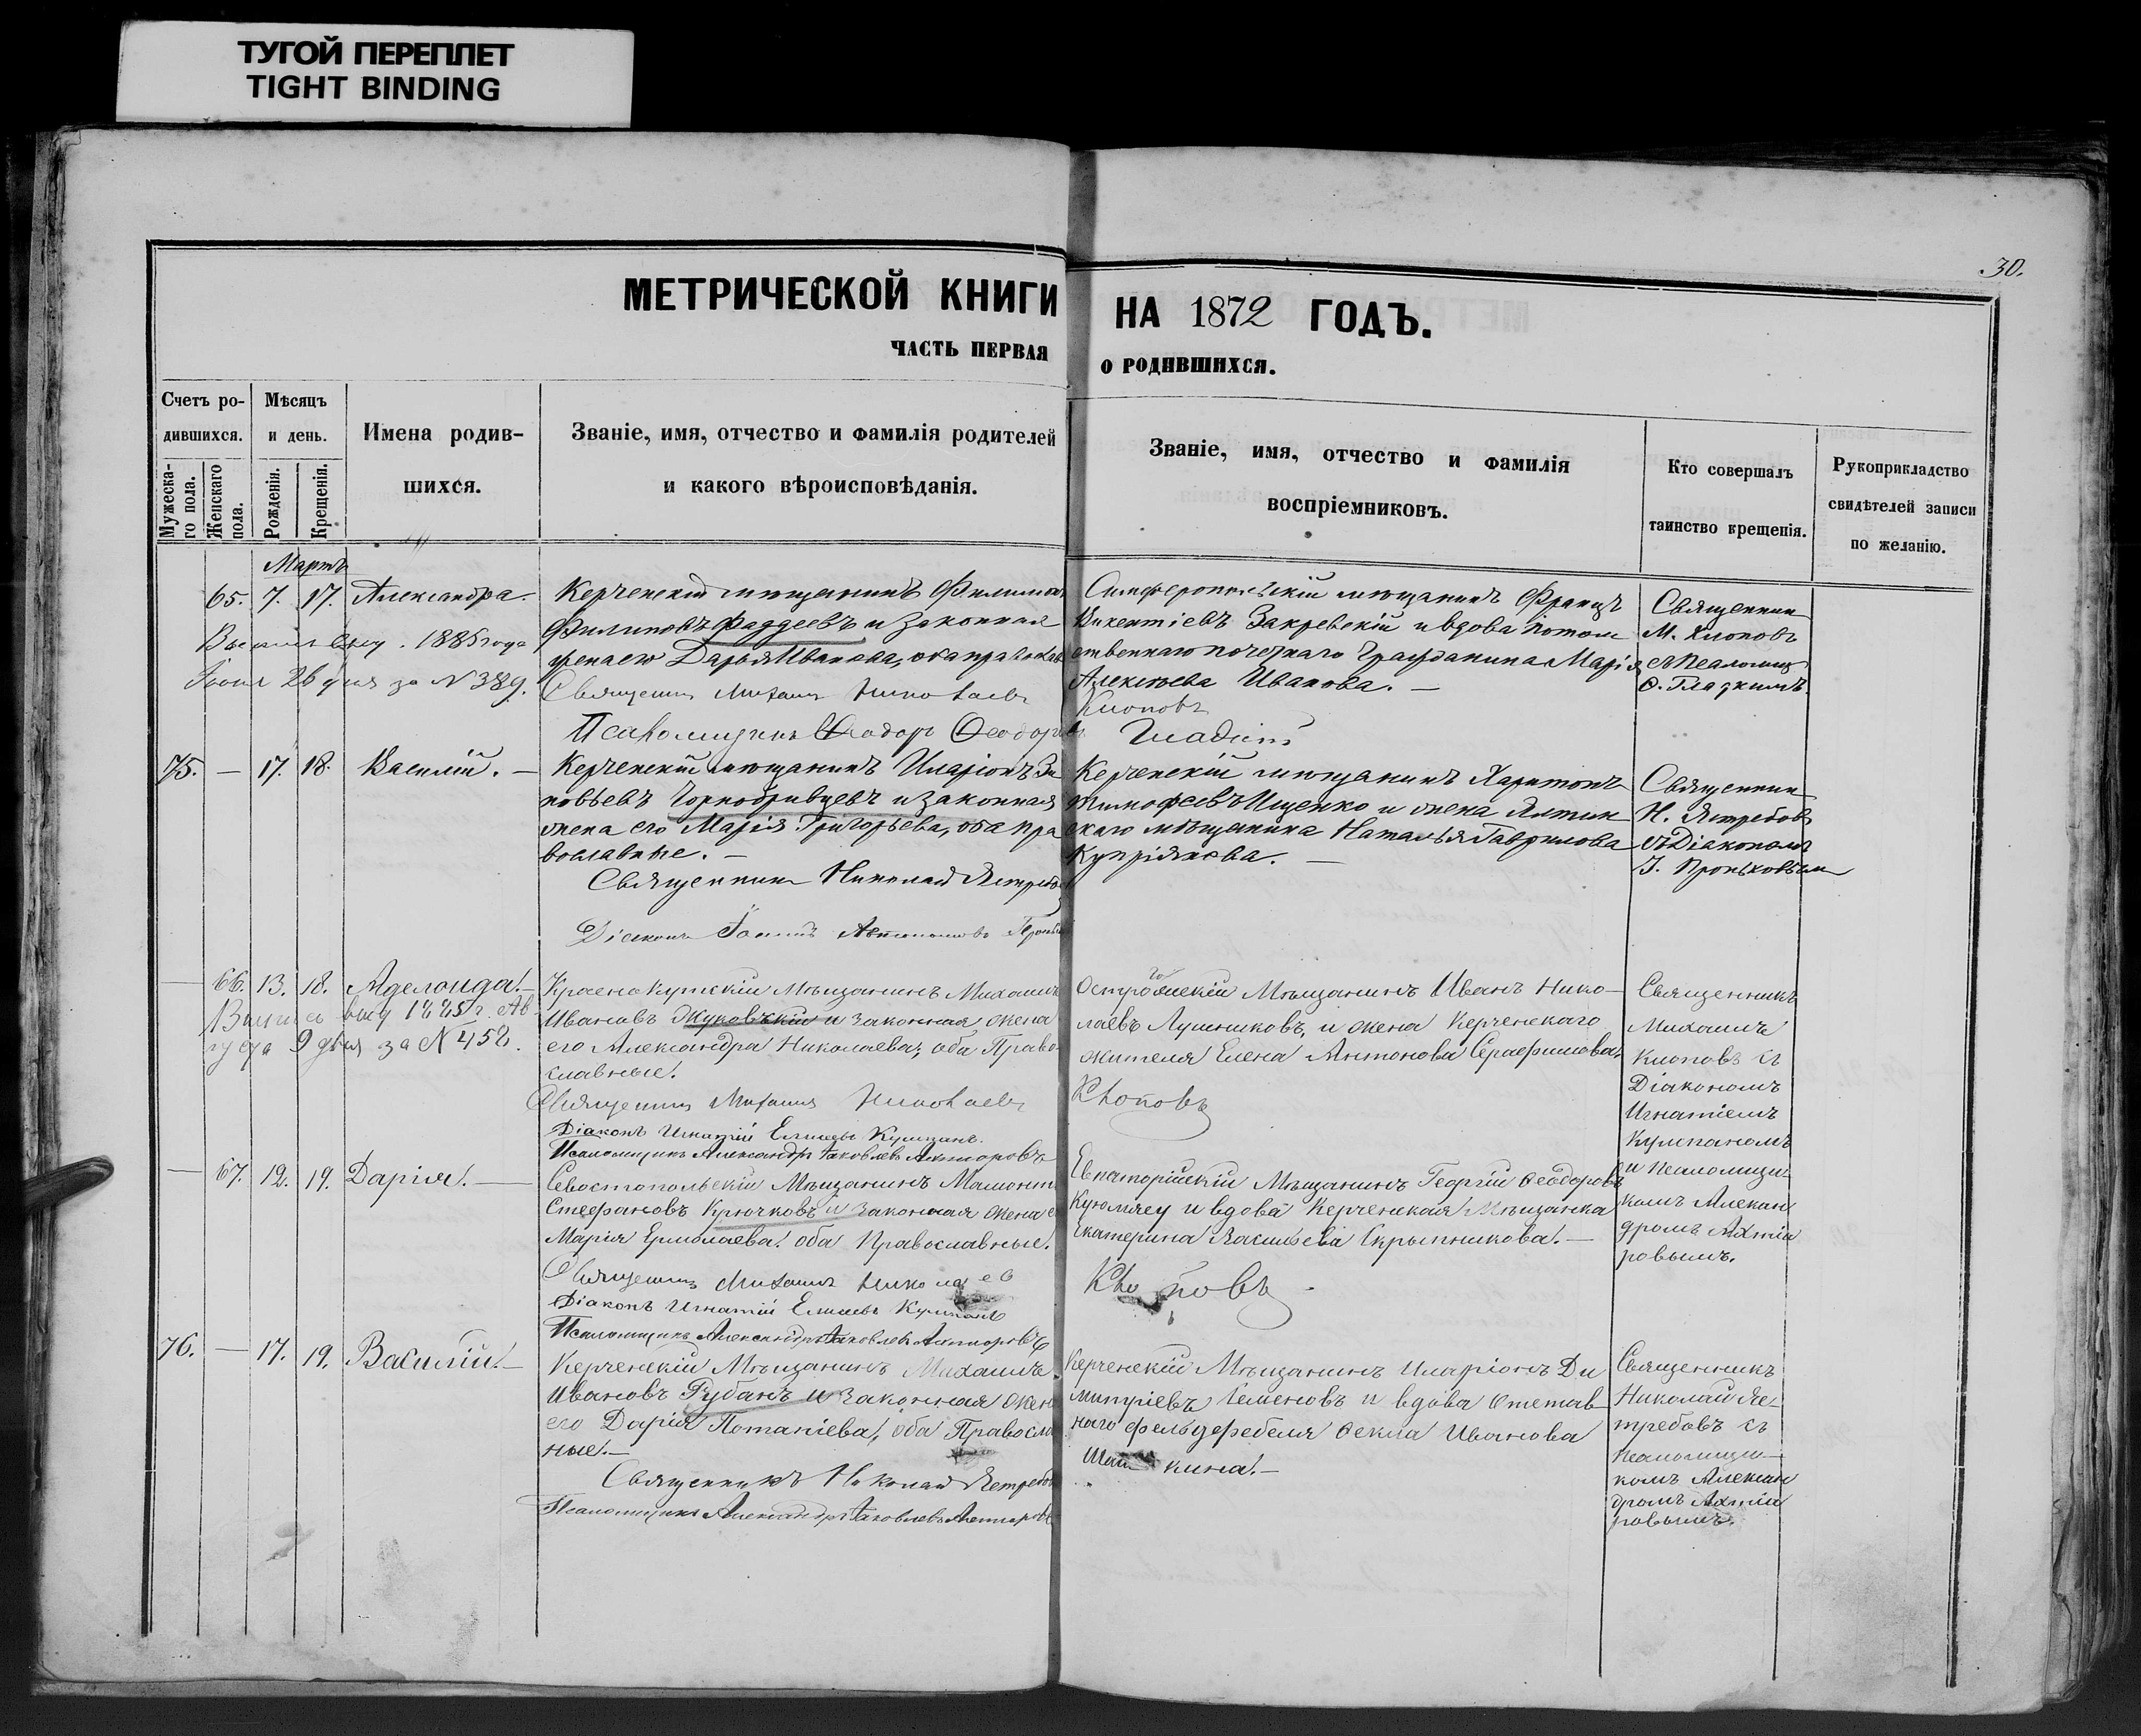 ТУГОЙ ПЕРЕПЛЕТ
TIGHT BINDING
30.
МЕТРИЧЕСКОЙ КНИГИ НА 1872 ГОДЪ.
ЧАСТЬ ПЕРВАЯ О РОДИВШИХСЯ.
Счетъ родившихся.
Мужескаго пола.
Женскаго пола.
Мѣсяцъ и день.
Рожденія.
Крещенія.
Имена родившихся.
Званіе, имя, отчество и фамилія родителей
и какого вѣроисповѣданія.
Званіе, имя, отчество и фамилія
воспріемниковъ.
Кто совершалъ
таинство крещенія.
Рукоприкладство
свидѣтелей записи
по желанію.
Мартъ
65. 7. 17. Александра.
1885 года
26 дня за N 389.
Керченскій мѣщанинъ Филиппъ
Филиповъ Фаддеевъ и законная
жена его Дарья Иванова, оба православ
Священникъ Михаилъ Николаевъ
Псаломщикъ Ѳеодоръ Ѳеодоровъ
Симферопольскій мѣщанинъ Францъ
Викентіевъ Закревскій и вдова потом
ственнаго почетнаго гражданина Марія
Алексѣева Иванова. —
Клоповъ
Гладкій
Священник
М. Клоповъ
съ псаломщ
Ѳ. Гладкимъ.
75. — 17. 18. Василій. —
Керченскій мѣщанинъ Иларіонъ Зи
новьевъ Чорнобривцевъ и законная
жена его Марія Григорьева, оба пра
вославные. —
Священникъ Николай Ястребов
Діаконъ Іоаннъ
Керченскій мѣщанинъ Харитонъ
Тимофеевъ Ищенко и жена Ялтин
скаго мѣщанина Наталья Гаврилова
Купріянова. —
Священник
Н. Ястребовъ
съ Діакономъ
І. Проньковым
— 66. 13. 18. Аделаида. —
1885 г. Ав
густа 9 дня за N 458.
Краснокутскій Мѣщанинъ Михаилъ
Ивановъ Жуковскій и законная жена
его Александра Николаева, оба Право
славные.
Священникъ Михаилъ Николаевъ
Діаконъ Игнатій Елисеевъ Кулшанъ
Псаломщикъ Александръ Іаковлевъ Ахтіоровъ
Острогожскій Мѣщанинъ Иванъ Нико-
лаевъ Лушниковъ, и жена Керченскаго
жителя Елена Антонова Серафимова.
Клоповъ
Священникъ
Михаилъ
Клоповъ съ
Діакономъ
Игнатіемъ
и Псаломщи-
комъ Алексан
дромъ Ахтіо
ровымъ.
— 67. 12. 19. Дарія. —
Севостопольскій Мѣщанинъ Мамонтъ
Стефановъ Крючковъ и законная жена е
Марія Ермолаева, оба Православные.
Священникъ Михаилъ Николаев
Діаконъ Игнатій Елисеевъ
Псаломщикъ Александръ Іаковлевъ Ахтіоровъ
Евпаторійскій Мѣщанинъ Георгій Ѳеодоровъ
и вдова Керченская Мѣщанка
Екатерина Васильева Скрыпникова. —
Клоповъ
76. — 17. 19. Василій. —
Керченскій Мѣщанинъ Михаилъ
Ивановъ Рубанъ и законная жена
его Дарія Потапіева, оба Правосла
ные. —
Священникъ Николай Ястребов
Псаломщикъ Александръ Іаковлевъ Ахтіоровъ
Керченскій Мѣщанинъ Иларіонъ Ди
митріевъ Семеновъ и вдова Отстав
наго фельдфебеля Ѳекла Иванова
кина. —
Священникъ
Николай Яс-
требовъ съ
Псаломщи-
комъ Алексан
дромъ Ахтіо
ровымъ.